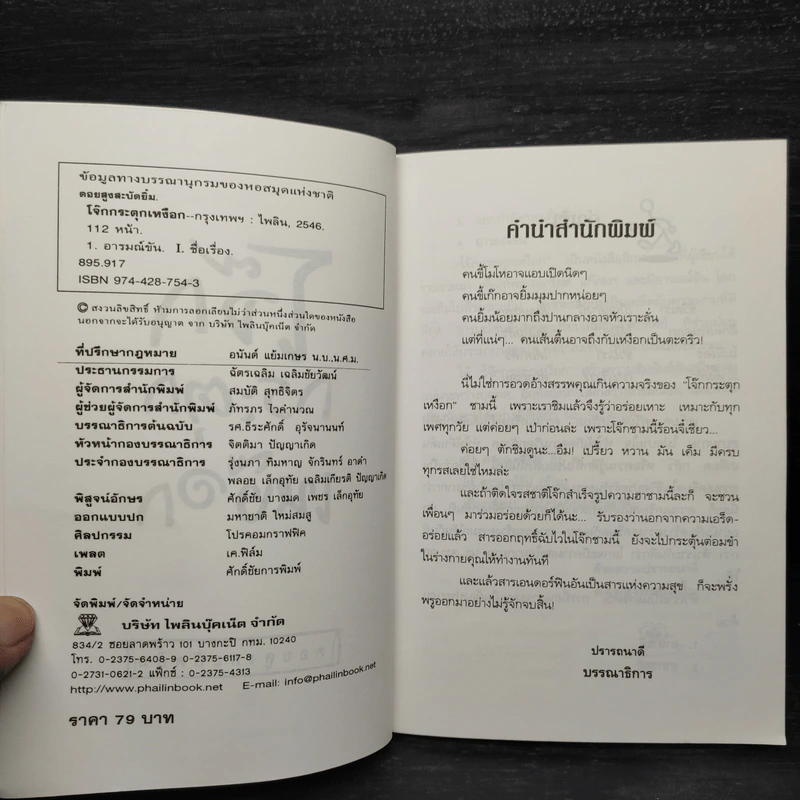 ข้อมูลทางบรรณานุกรมของหอสมุดแห่งชาติ
ดอยสูงสะบัดยิ้ม.
โจ๊กกระตุกเหงือก--กรุงเทพฯ : ไพลิน, 2546.
112 หน้า.
1. อารมณ์ขัน. I. ชื่อเรื่อง.
895.917
ISBN 974-428-754-3
© สงวนลิขสิทธิ์ ห้ามการลอกเลียนไม่ว่าส่วนหนึ่งส่วนใดของหนังสือ
นอกจากจะได้รับอนุญาต จาก บริษัท ไพลินบุ๊คเน็ต จำกัด
ที่ปรึกษากฎหมาย อนันต์ แย้มเกษร น.บ.,น.ศ.ม.
ประธานกรรมการ ฉัตรเฉลิม เฉลิมชัยวัฒน์
ผู้จัดการสำนักพิมพ์ สมบัติ สุทธิจิตร
ผู้ช่วยผู้จัดการสำนักพิมพ์ ภัทรภร ไวคำนวณ
บรรณาธิการต้นฉบับ รศ.ธีระศักดิ์ อุรัจนานนท์
หัวหน้ากองบรรณาธิการ จิตติมา ปัญญาเกิด
ประจำกองบรรณาธิการ รุ่งนภา ทิมหาญ จักรินทร์ อาดำ
พลอย เล็กอุทัย เฉลิมเกียรติ ปัญญาเกิด
พิสูจน์อักษร ศักดิ์ชัย บางมด เพชร เล็กอุทัย
ออกแบบปก มหายาติ ใหม่สมสู
ศิลปกรรม โปรคอมกราฟฟิค
เพลต เค.ฟิล์ม
พิมพ์ ศักดิ์ชัยการพิมพ์
จัดพิมพ์/จัดจำหน่าย
บริษัท ไพลินบุ๊คเน็ต จำกัด
834/2 ซอยลาดพร้าว 101 บางกะปิ กทม. 10240
โทร. 0-2375-6408-9 0-2375-6117-8
0-2731-0621-2 แฟ็กซ์ : 0-2375-4313
http://www.phailinbook.net E-mail: info@phailinbook.net
ราคา 79 บาท
คำนำสำนักพิมพ์
คนขี้โมโหอาจแอบเปิดนิดๆ
คนขี้เก๊กอาจยิ้มมุมปากหน่อยๆ
คนยิ้มน้อยมากถึงปานกลางอาจหัวเราะลั่น
แต่ที่แน่ๆ... คนเส้นตื้นอาจถึงกับเหงือกเป็นตะคริว!
นี่ไม่ใช่การอวดอ้างสรรพคุณเกินความจริงของ "โจ๊กกระตุก
เหงือก" ชามนี้ เพราะเราชิมแล้วจึงรู้ว่าอร่อยเหาะ เหมาะกับทุก
เพศทุกวัย แต่ค่อยๆ เป่าก่อนล่ะ เพราะโจ๊กชามนี้ร้อนจี๋เชียว...
ค่อยๆ ตักชิมดูนะ...อืม! เปรี้ยว หวาน มัน เค็ม มีครบ
ทุกรสเลยใช่ไหมล่ะ
และถ้าติดใจรสชาติโจ๊กสำเร็จรูปความฮาชามนี้ละก็ จะชวน
เพื่อนๆ มาร่วมอร่อยด้วยก็ได้นะ... รับรองว่านอกจากความเอร็ด-
อร่อยแล้ว สารออกฤทธิ์ฉับไวในโจ๊กชามนี้ ยังจะไปกระตุ้นต่อมขำ
ในร่างกายคุณให้ทำงานทันที
และแล้วสารเอนดอร์ฟินอันเป็นสารแห่งความสุข ก็จะพรั่ง
พรูออกมาอย่างไม่รู้จักจบสิ้น!
ปรารถนาดี
บรรณาธิการ